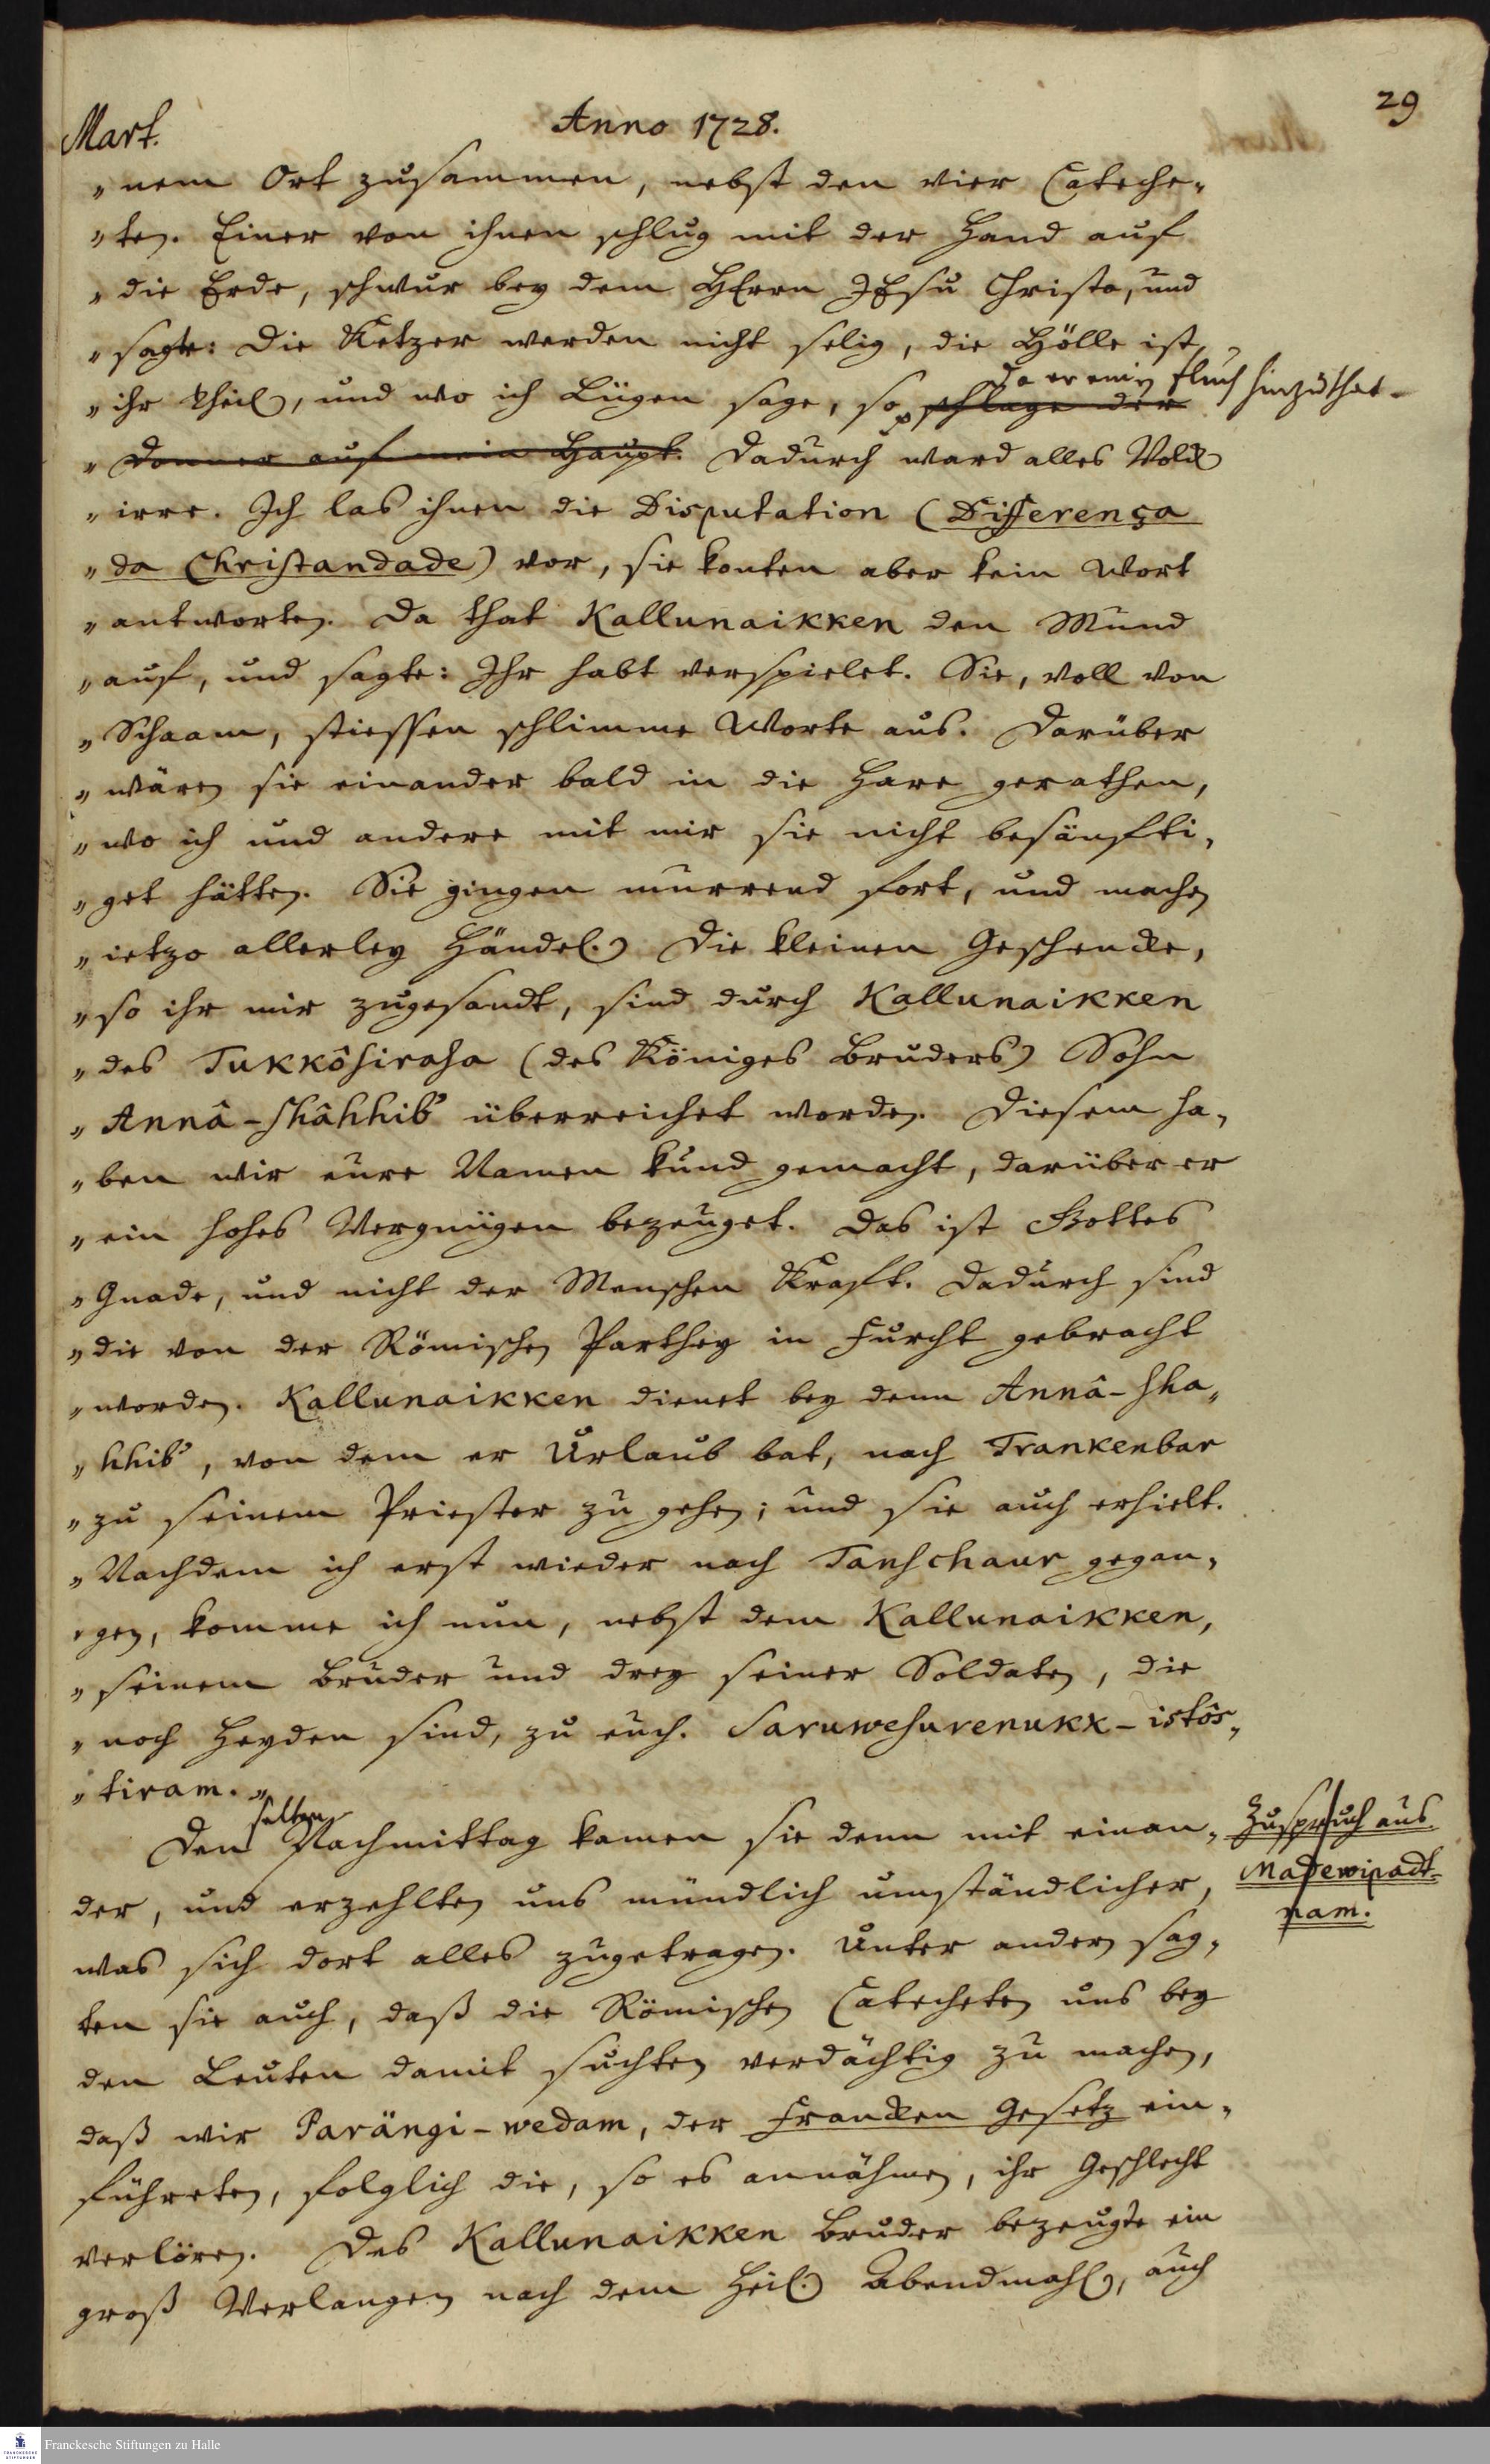 29
Mart.
Anno 1728.
„nem Ort zusammen, nebst den vier Cateche„
„ten. Einer von ihnen schlug mit der Hand auf
„die Erde, schwur bey dem HErrn JEsu Christo, und
„sagte: Die Ketzer werden nicht selig, die Hölle ist
da er einen Fluch hinzuthat.
„ihr theil, und wo ich Lügen sage, so schlage der
„Donner auf mein Haupt. Dadurch ward alles Volck
„irre. Ich las ihnen die Disputation (Differença
„da Christandade) vor, sie konten aber kein Wort
„antworten. Da that Kallunaikken den Mund
„auf, und sagte: Ihr habt verspielet. Sie, voll von
„Schaam, stiessen schlimme Worte aus. Darüber
„wären sie einander bald in die Hare gerathen,
„wo ich und andere mit mir sie nicht besänfti„
„get hätten. Sie gingen murrend fort, und machen
„ietzo allerley Händel. Die kleinen Geschencke,
„so ihr mir zugesandt, sind durch Kallunaikken
„des Tukkôsirasa (des Königes Bruders) Sohn
„Annâ-shâhhib überreichet worden. Diesem ha„
„ben wir eure Namen kund gemacht, darüber er
„ein hohes Vergnügen bezeuget. Das ist Gottes
„Gnade, und nicht der Menschen Kraft. Dadurch sind
„die von der Römischen Parthey in Furcht gebracht
„worden. Kallunaikken dienet bey dem Annâ-sha„
„hhib, von dem er Urlaub bat, nach Trankenbar
„zu seinem Priester zu gehen; und sie auch erhielt.
„Nachdem ich erst wieder nach Tanschaur gegan„
„gen, komme ich nun, nebst dem Kallunaikken,
„seinem Bruder und drey seiner Soldaten, die
„noch Heyden sind, zu euch. Saruwesurenukk-istôs„
„tiram.„
selben
Den Nachmittag kamen sie denn mit einan„
Zuspruch aus
Madewipadt„
nam.
der, und erzehlten uns mündlich umständlicher,
was sich dort alles zugetragen. Unter andern sag„
ten sie auch, daß die Römischen Catecheten uns bey
den Leuten damit suchten verdächtig zu machen,
daß wir Parängi-wedam, der Francken Gesetz ein„
führeten, folglich die, so es annähmen, ihr Geschlecht
verlören. Des Kallunaikken Bruder bezeugte ein
groß Verlangen nach dem Heil. Abendmahl, auch
Franckesche Stiftungen zu Halle